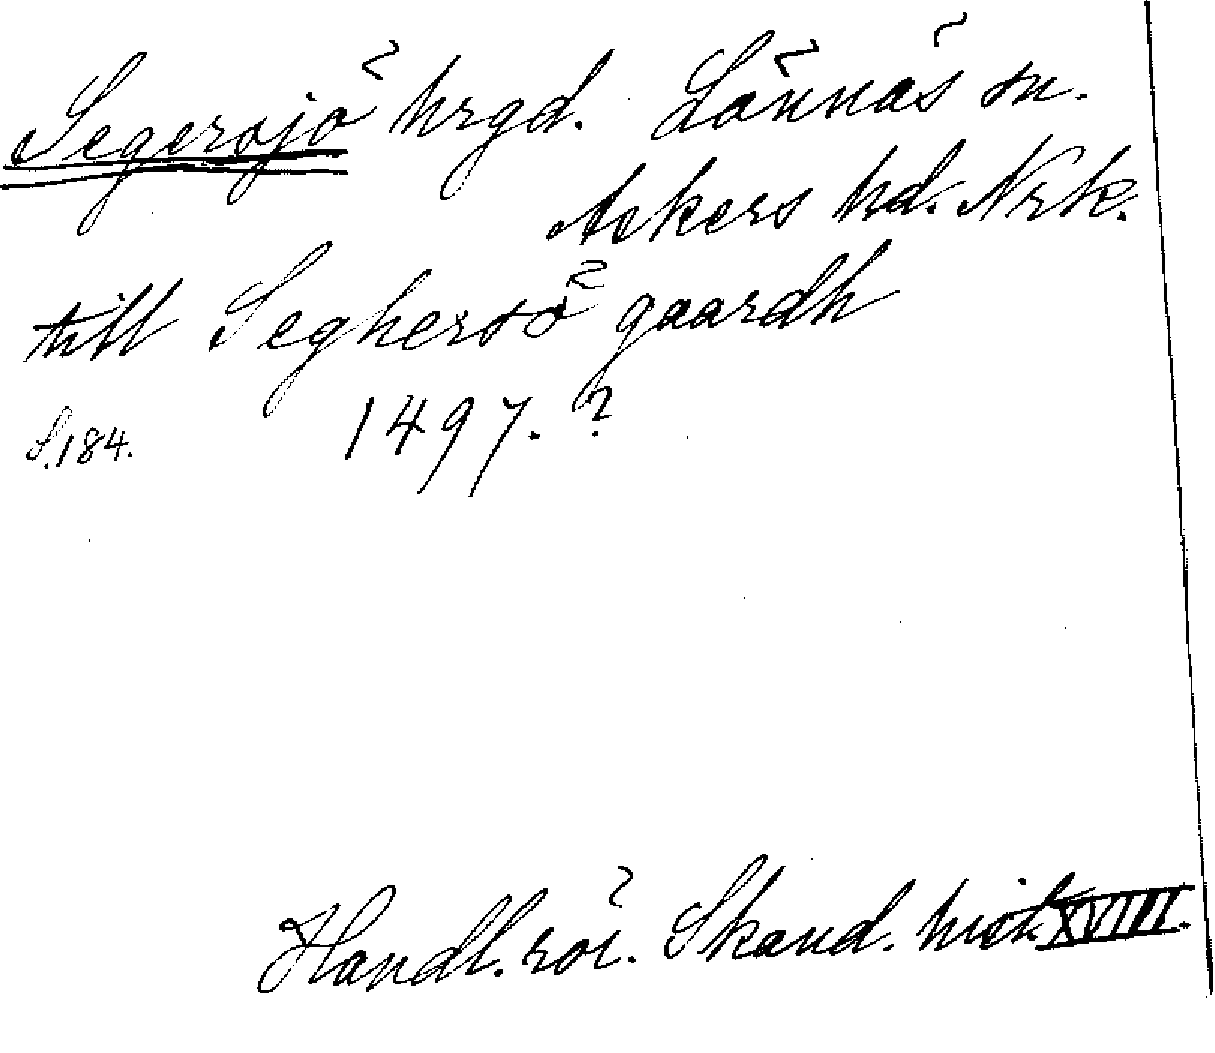 Segersjö hrgd. Lännäs sn.
Askers hd. Nrk.
till Seghersö gaardh
S.184. 1497. ?
Handl. rör. Skand. hist. XVIII.